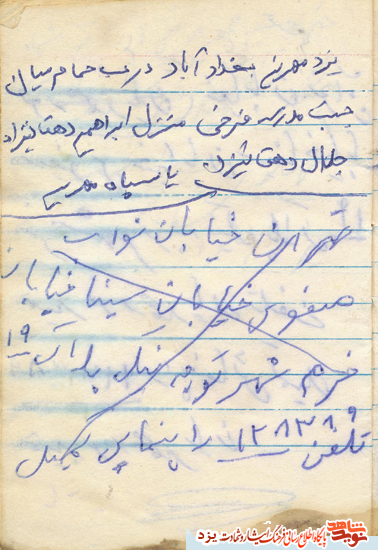 یزد مهریز بغداد آباد درب حمام میان
جنب مدرسه فرخی منزل ابراهیم دهقانی‌نژاد
جلال دهقانی‌نژاد یا سپاه مهریز
تهران خیابان نواب
خیابان سینا خیابان
خرم شهر کوچه پلاک ۱۹
تلفن ۱۲۸۳۸۹ راهنمایی
نوید شاهد پایگاه اطلاع رسانی فرهنگ ایثار و شهادت یزد